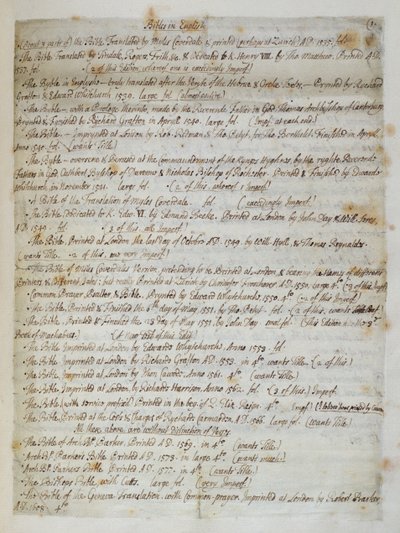 Bibles in English
1
part of the Bible Translated by Myles Coverdale & printed perhaps at Zurich A.D. 1535. fol.
The Bible Translated by Tindale, Rogers & Dedicated to K. Henry VIII. by Tho. Matthew. Printed A.D.
1537. fol. (2 of this Edition, whereof one is exceedingly Imperf.)
The Byble in Englyshe truly translated after the Veryte of the Hebrue & Greke Textes. Prynted by Rychard
Grafton & Edward Whitchurch 1539. large fol.
The Byble with a Prologe therinto, made by the Reverende Father in God Thomas Archbishop of Canterbury
Prynted & Finished by Richard Grafton in April 1540. large fol. (Imp. at each end.)
The Byble Imprinted at London by Rob. Redman & Tho. Petyt, for Tho. Berthelet. Finisshed in Apryll
Anno 1540. fol. (wants Title.)
The Byble oversene & Perused at the commaundement of the Kynges Hyghnes, by the ryghte Reverende
Fathers in God Cuthbert Bysshop of Duresme & Nicholas Bisshop of Rochester. Printed & Finished by Edwarde
Whitchurch in November 1541. large fol. (2 of this, whereof 1 Imperf.)
A Bible of the Translation of Myles Coverdale. fol. (exceedingly Imperf.)
The Bible Dedicated to K. Edw. VI. by Edmund Becke. Printed at London by John Day & Will. Seres
A.D. 1549. fol. 2 of this, all Imperf.)
The Bible Printed at London the last Day of Octobre A.D. 1549. by Will. Hyll & Thomas Reynaldes.
(wants Title. 2 of this, one very Imperf.)
The Bible of Miles Coverdales Version, pretending to be Printed at London & bearing the Names of different
Printers & Dates; but really Printed at Zurich by Christofer Froschover A.D. 1550. large 4to. (3 of this Imperf.)
Common Prayer, Psalter & Bible. Prynted by Edward Whitchurch, 1550. 4to. (2 of this Imperf.)
The Bible, Printed & Finished the 6th day of May 1551. by Tho. Petyt. fol.
The Bible, Printed & Finished the 23 day of May 1551. by John Day. fol. (This Edition
Book of Machabees)
The Bible Imprinted at London by Edwarde Whytchurche Anno 1553. fol.
The Bible Imprinted at London by Richard Grafton A.D. 1553. in 4to. wants Title. (2 of this.)
The Bible Imprinted at London by Jhon Cawod. Anno 1561. 4to. (wants Title.)
The Bible, Imprinted at London by Richarde Harrison Anno 1562. fol. (3 of these,) Imperf.
The Bible with
The Bible. Printed at the Costs & Charges of Rychard Carmarden. A.D. 1566. large fol. (wants Title.)
All these above are without Distinction of Verses
The Bible of Archbp. Parker. Printed A.D. 1569. in 4to. (wants Title.)
Archbp. Parker's Bible. Printed A.D. 1573. in large 4to. (wants much.)
Archbp. Parkers Bible. Printed A.D. 1577. in 4to. (wants Title.)
The Bishops Bible, with Cutts. large fol. (very Imperf.)
The Bible of the Geneva Translation, with Common-prayer. Imprinted at London by Robert Barker,
A.D. 4to.